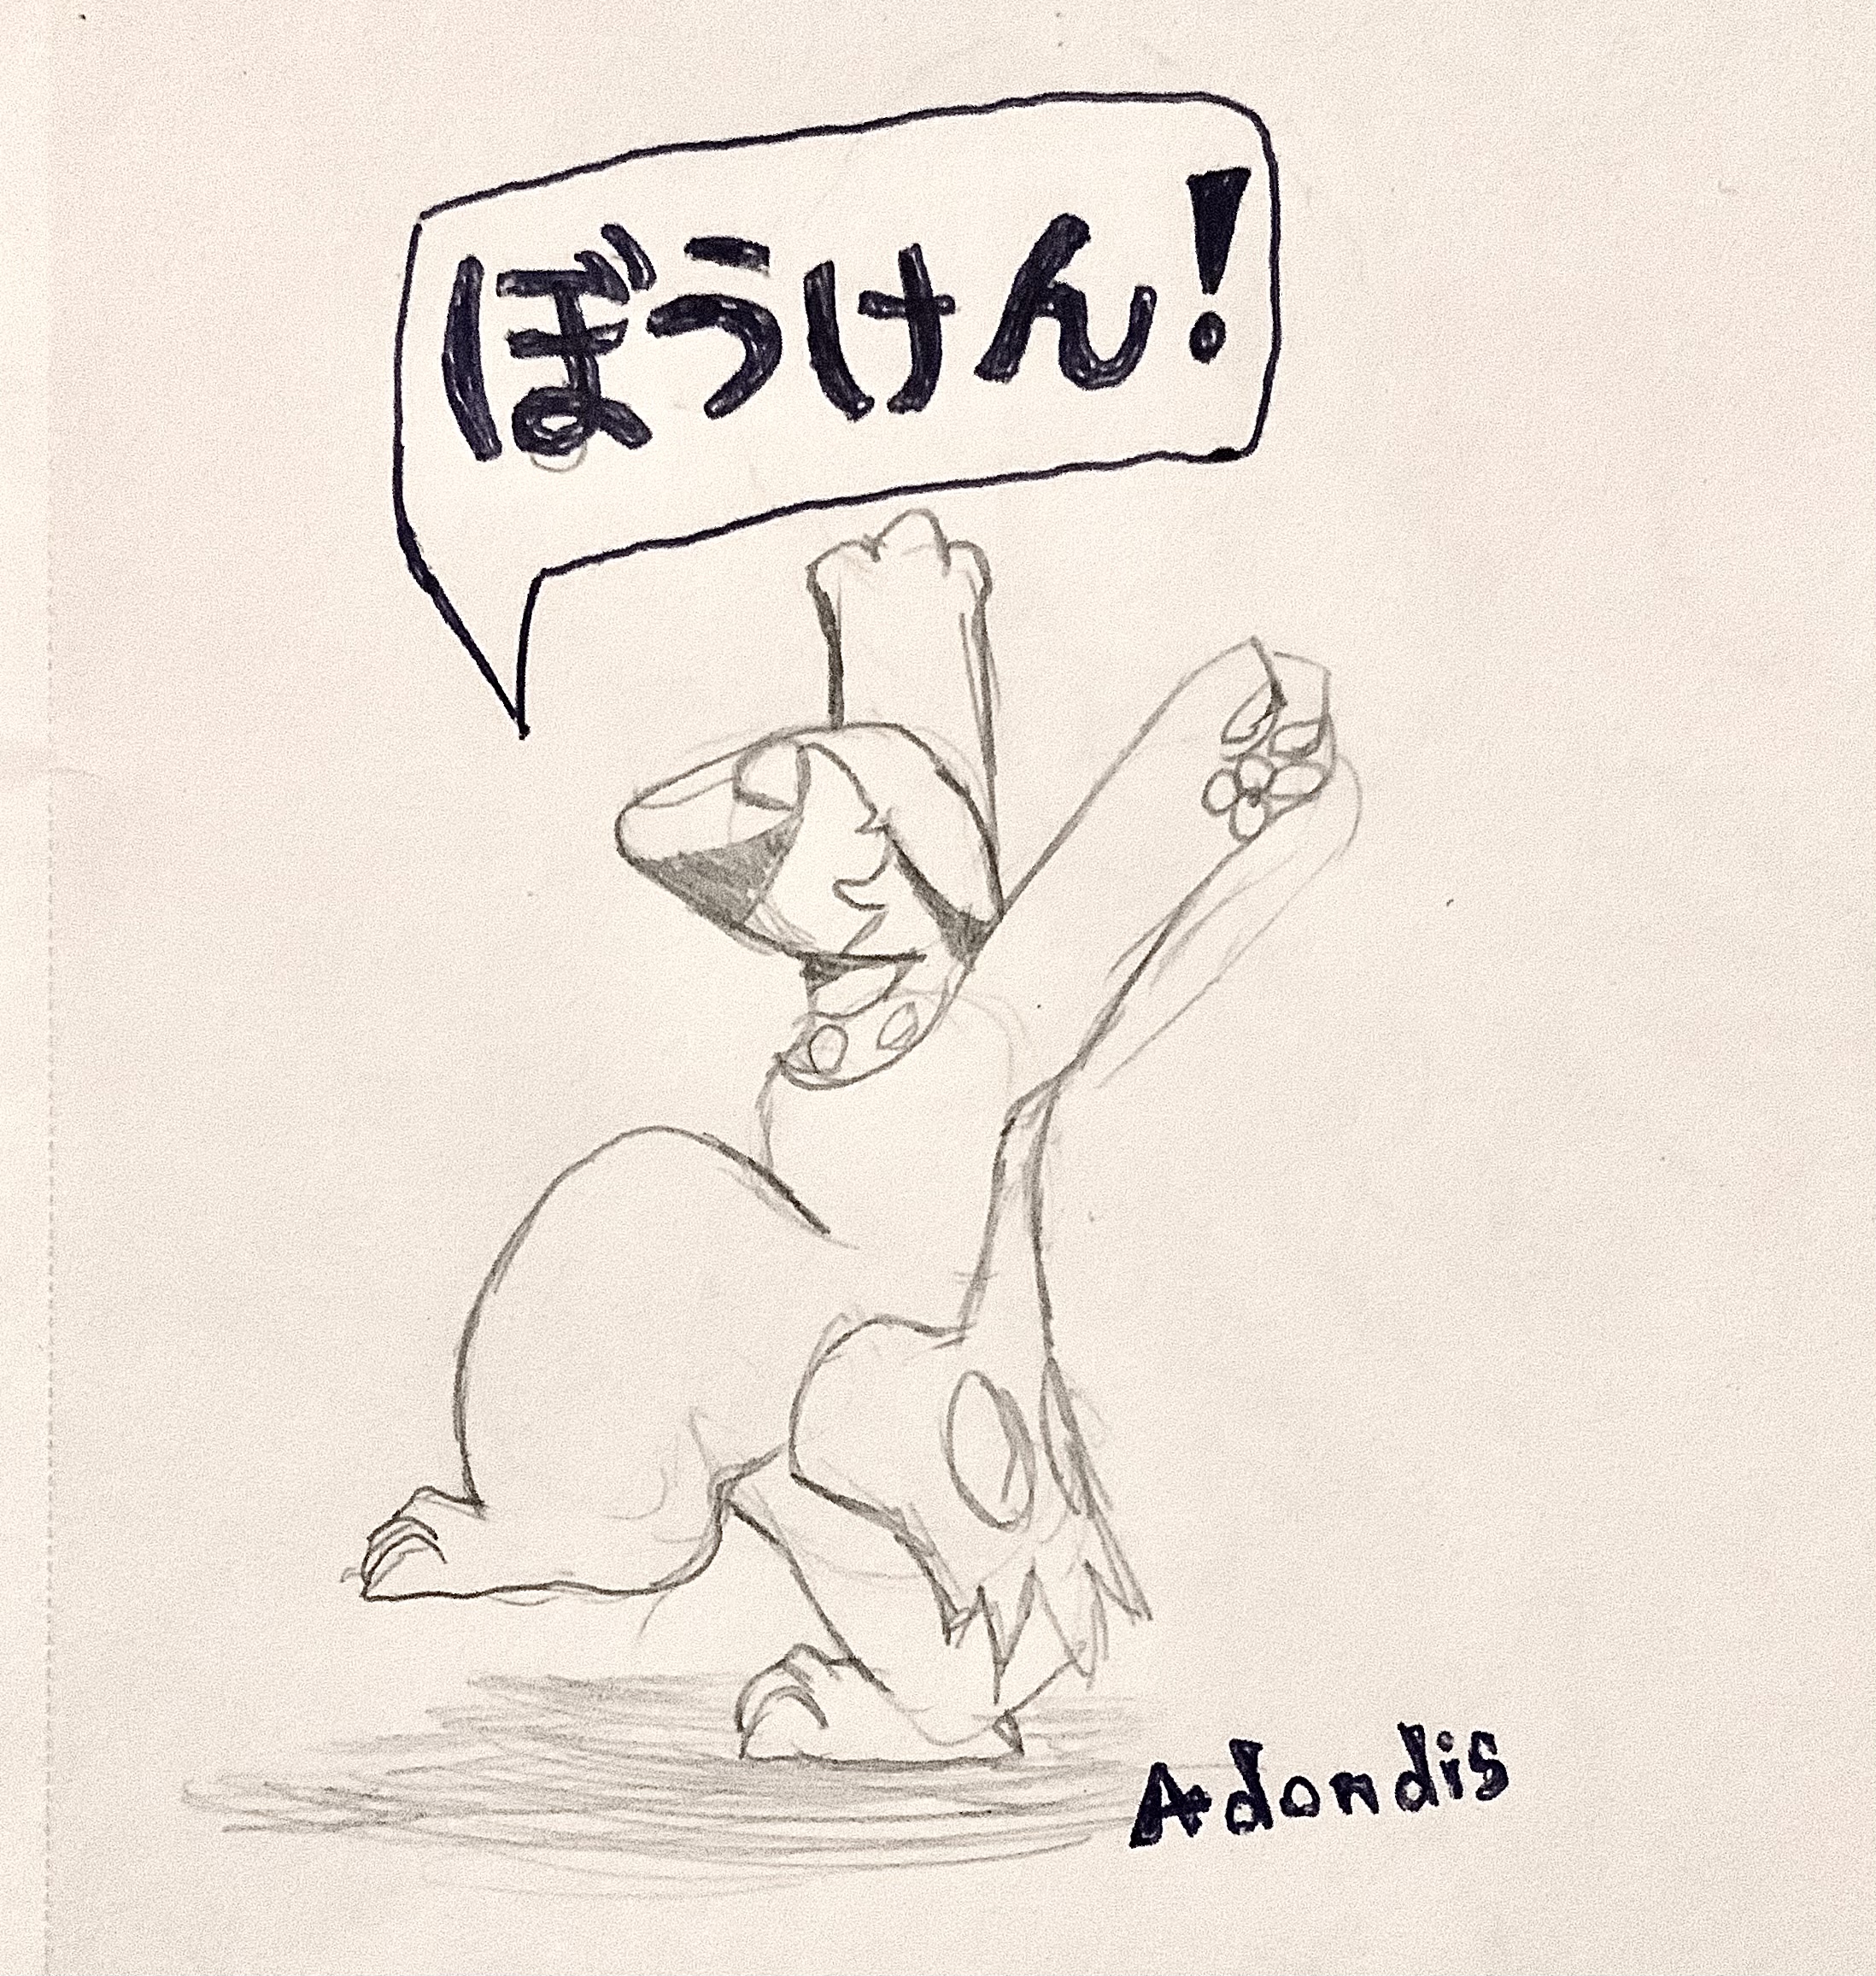 ぼうけん!
Adondis